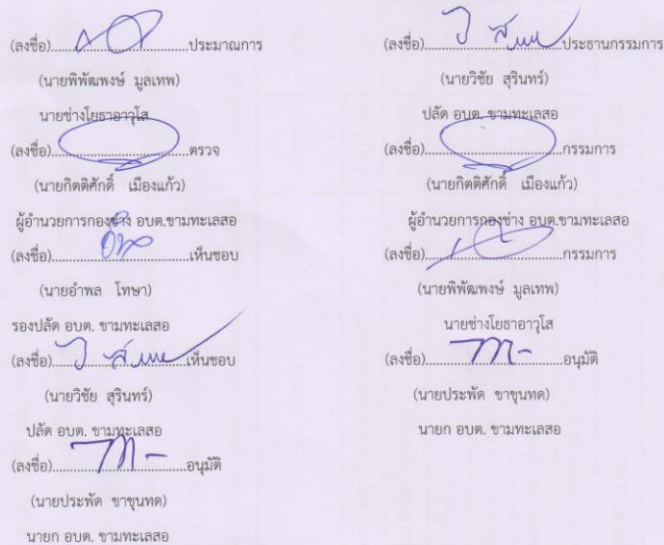 (ลงชื่อ)..............................ประมาณการ
(นายพิพัฒพงษ์ มูลเทพ)
นายช่างโยธาอาวุโส
(ลงชื่อ)..............................ตรวจ
(นายกิตติศักดิ์ เมืองแก้ว)
ผู้อำนวยการกองช่าง อบต.ขามทะเลสอ
(ลงชื่อ)..............................เห็นชอบ
(นายอำพล โทษา)
รองปลัด อบต. ขามทะเลสอ
(ลงชื่อ)..............................เห็นชอบ
(นายวิชัย สุรินทร์)
ปลัด อบต. ขามทะเลสอ
(ลงชื่อ)..............................อนุมัติ
(นายประพัด ชาขุนทด)
นายก อบต. ขามทะเลสอ
(ลงชื่อ)..............................ประธานกรรมการ
(นายวิชัย สุรินทร์)
ปลัด อบต. ขามทะเลสอ
(ลงชื่อ)..............................กรรมการ
(นายกิตติศักดิ์ เมืองแก้ว)
ผู้อำนวยการกองช่าง อบต.ขามทะเลสอ
(ลงชื่อ)..............................กรรมการ
(นายพิพัฒพงษ์ มูลเทพ)
นายช่างโยธาอาวุโส
(ลงชื่อ)..............................อนุมัติ
(นายประพัด ชาขุนทด)
นายก อบต. ขามทะเลสอ